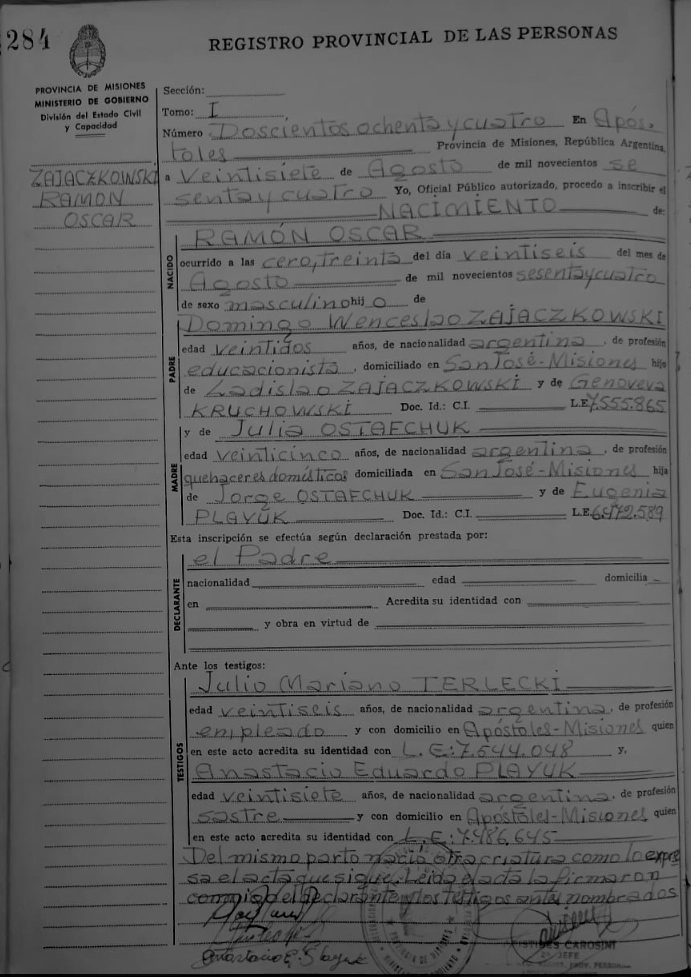 284
REGISTRO PROVINCIAL DE LAS PERSONAS
PROVINCIA DE MISIONES
MINISTERIO DE GOBIERNO
División del Estado Civil
y Capacidad
ZAJACZKOWSKI
RAMON
OSCAR
Sección:
Tomo: I
Número Doscientos ochenta y cuatro En Após.
toles Provincia de Misiones, República Argentina,
a veintisiete de Agosto de mil novecientos se
senta y cuatro Yo, Oficial Público autorizado, procedo a inscribir el
NACIMIENTO de:
NACIDO
RAMÓN OSCAR
ocurrido a las cero, treinta del día veintiseis del mes de
Agosto de mil novecientos sesenta y cuatro
de sexo masculino hijo de
PADRE
Domingo Wenceslao ZAJACZKOWSKI
edad veintidos años, de nacionalidad argentina, de profesión
educacionista, domiciliado en San José-Misiones hijo
de Ladislao ZAJACZKOWSKI y de Genoveva
KRUCHOWSKI Doc. Id.: C.I. L.E. 7.555.865
MADRE
y de Julia OSTAFCHUK
edad veinticinco años, de nacionalidad argentina, de profesión
quehaceres domésticos domiciliada en San José-Misiones hija
de Jorge OSTAFCHUK y de Eugenia
PLAYUK Doc. Id.: C.I. L.E.
Esta inscripción se efectúa según declaración prestada por:
DECLARANTE
el Padre
nacionalidad edad domicilia
en Acredita su identidad con
y obra en virtud de
Ante los testigos:
TESTIGOS
Julio Mariano TERLECKI
edad veintiseis años, de nacionalidad argentina, de profesión
empleado y con domicilio en Apóstoles-Misiones quien
en este acto acredita su identidad con L.E: 7.544.048 y,
Anastacio Eduardo PLAYUK
edad veintisiete años, de nacionalidad argentina, de profesión
sastre y con domicilio en Apóstoles-Misiones quien
en este acto acredita su identidad con L.E: 7.486.645
Del mismo parto nació otra criatura como lo expre
sa el acta que sigue. Leída el acta la firmaron
conmigo el declarante y los testigos antes nombrados
CAROSINI
JEFE